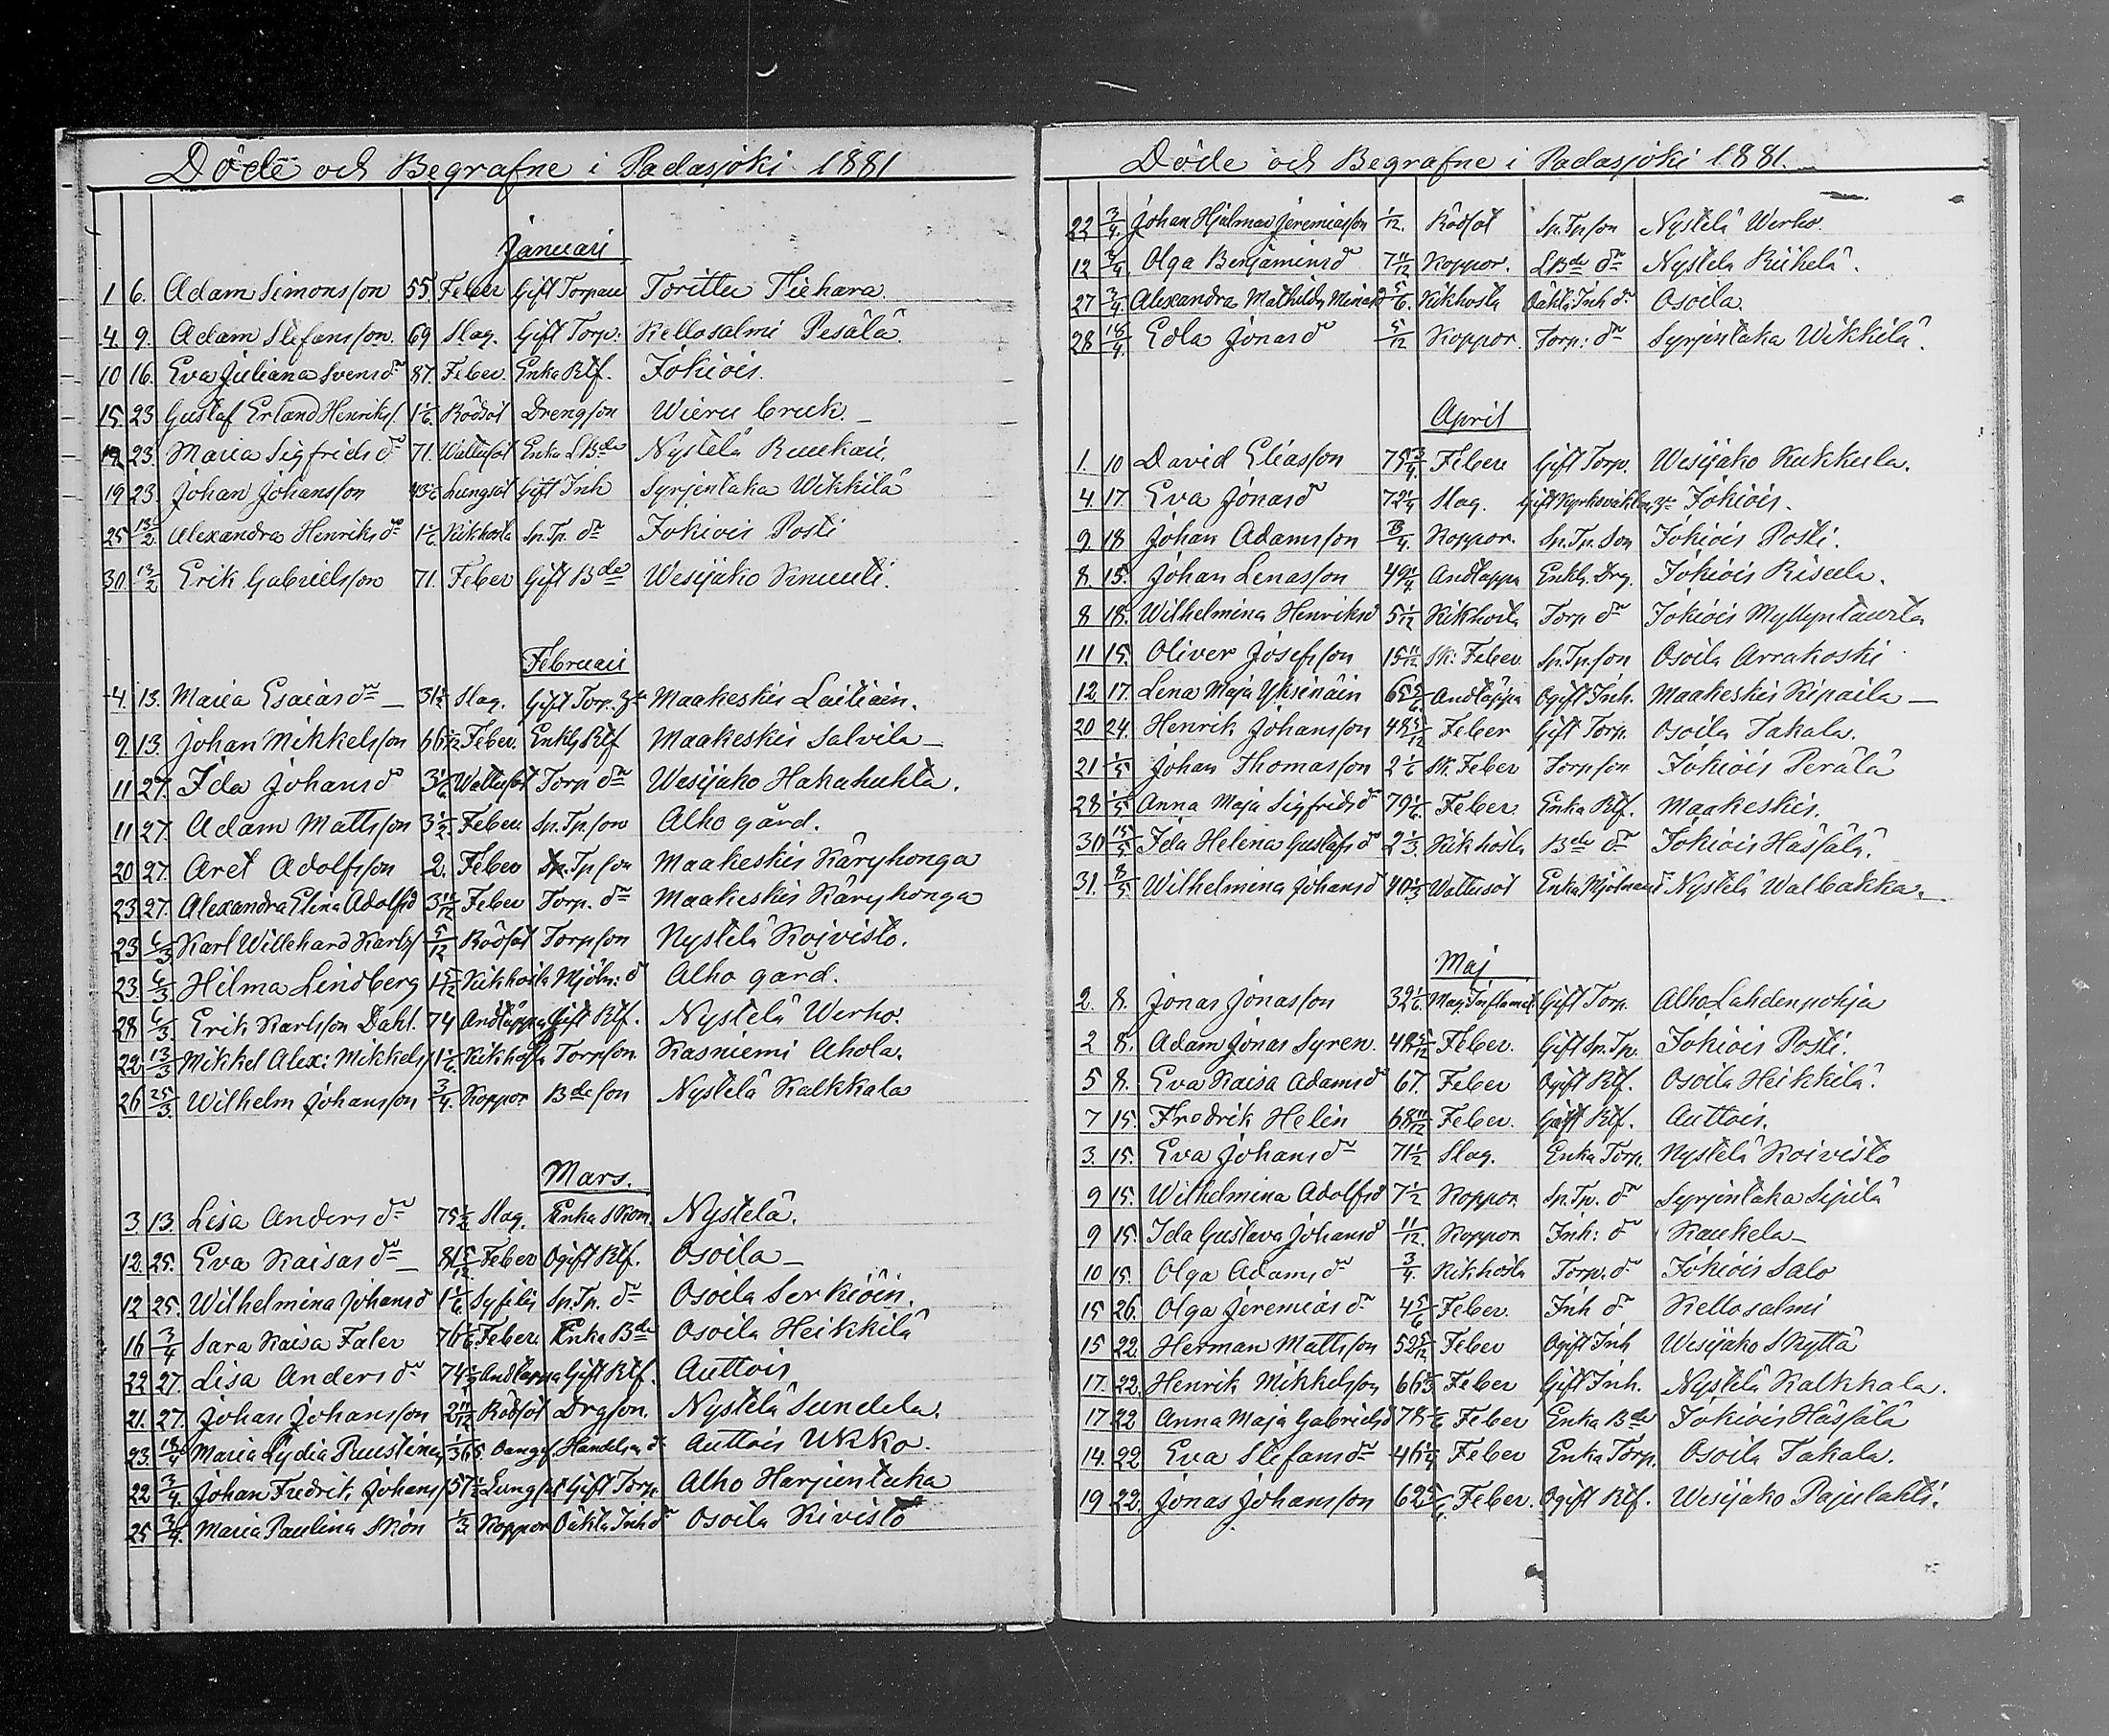 Döde och Begrafne i Padasjoki 1881
Januari
1 6. Adam Simonsson 55 Feber Gift Torpare Torittu Tiehara
4. 9. Adam Stefansson. 69 Slag. Gift Torp: Kellosalmi Pesälä.
10 16. Eva Juliana Svensdr 87. Feber. Enka Rtf. Jokiois.
15. 23 Gustaf Erland Henrikss. 1 1/6 Rödsot Drengson Wieru bruk. –
19. 23. Maria Sigfridsdr 71. Wattusot Enka LBde Nystelä Ruukari,
19 23. Johan Johansson Lungsot Gift Inh Syrjentaka Wikkilä
25 13/2. Alexandra Henriksdr 1 1/6 Kikhosta Sp. Tp. dr Jokiois Posti
30. 13/2 Erik Gabrielsson 71. Feber Gift Bde Wesijako Knuuti.
Februari
4. 13. Maria Esaiasdr – 31 1/2 Slag. Gift Torp. Maakeskis Laitiain.
9. 13. Johan Mikkelsson 66 1/12 Feber. Enkl. Rtf Maakeskis Salvila –
11 27. Ida Johansd 3 1/6 Wattusot Torp dr Wesijako Hakahuhta.
11 27. Adam Mattsson 3 1/2. Feber Sp. Tp. son Alho gård.
20 27. Aret Adolfsson 2. Feber Sp. Tp son Maakeskis Käryhonga
23 27. Alexandra Elina Adolfsd 3 11/12 Feber Torp. dr Maakeskis Käryhonga
23 6/3 Karl Willehard Karlss 5/12 Rödsot Torpson Nystelä Koivisto.
23. 6/3. Hilma Lindberg 1 5/12 Kikhosta Mjöln: d Alho gård.
28 6/3. Erik Karlsson Dahl. 74 Andtäppa Gift Rtf. Nystelä Werho.
22 13/3 Mikkel Alex: Mikkels 1 1/6. Kikhosta Torpson Kasniemi Ahola.
26 25/3 Wilhelm Johansson 3/4. Koppor Bdeson Nystelä Kalkkala
Mars.
3. 13. Lisa Andersdr 75 1/2 Slag. Enka Nystelä.
12. 25. Eva Kaisasdr – 81 5/12 Feber Ogift Rtf. Osoila –
12 25. Wilhelmina Johansd 1 1/6 Syfilis Sp. Tp. dr Osoila Serkiöin.
16 3/4 Sara Kaisa Faler 76 1/6 Feber. Enka Bde Osoila Heikkilä
22 27. Lisa Andersdr 74 Andtäppa Gift Rtf. Auttois
21. 27. Johan Johansson 2 11/12 Rödsot Drgson. Nystelä Sundela.
23. 18/4 Maria Lydia Puustinen Auttois Ukko.
22 3/4. Johan Fredrik Johanss 57 1/2 Lungsot Gift Torp. Alho Harjuntaka
25 3/4. Maria Paulina Skön 1/3 Koppor Oäkta Inh dr Osoila Kivistö
Döde och Begrafne i Padasjoki 1881.
22 3/4. Johan Hjalmar Jeremiasson 1/12. Rödsot Sp. Tp son Nystelä Werho.
12 3/4. Olga Benjaminsd 7 11/12 Koppor. LBde dr Nystelä Riihelä.
27 3/4. Alexandra Mathilda Kikhosta Oäkta Inh dr Osoila.
28 18/4. Edla Jonasd 5/12 Koppor. Torp: dr Syrjintaka Wikkilä.
April
1. 10 David Eliasson 75 3/4. Feber Gift Torp. Wesijako Kukkula.
4. 17. Eva Jonasd 72 1/4 Slag. Gift Kyrkovakt Jokiois.
9 18 Johan Adamsson 3/4. Koppor. Sp. Tp. Son Jokiois Posti.
8. 15. Johan Lenasson 49 1/4 Andtäppa Enkl. Drg. Jokiois Risula.
8 18. Wilhelmina Henriksd 5 1/12 Kikhosta Torp dr Jokiois Myllyntausta
11 15. Oliver Josefsson 15 11/12 Sk: Feber Sp. Tp son Osoila Arrakoski
12. 17. Lena Maja Yksinäin 65 5/6 Andtäppa Ogift Inh. Maakeskis Kipaila –
20 24. Henrik Johansson 48 5/12 Feber Gift Torp. Osoila Takala.
21 1/5 Johan Thomasson 2 1/6 Sk. Feber Torpson Jokiois Perälä
28 1/5 Anna Maja Sigfridsdr 79 1/6. Feber. Enka Rtf. Maakeskis.
30 15/5 Ida Helena Gustafsd 2 1/3. Kikhosta Bde dr Jokiois Hässälä.
31. 8/5. Wilhelmina Johansd 40 1/3 Wattusot Enka Nystelä Walbakka.
Maj
2. 8. Jonas Jonasson 32 1/6 Mag. Inflamat. Gift Torp. Alho Lahdenpohja
2 8. Adam Jonas Syren. 48 5/12 Feber. Gift Sp. Tp. Jokiois Posti.
5 8. Eva Kaisa Adamsd 67. Feber Ogift Rtf. Osoila Heikkilä.
7 15. Fredrik Helin 68 11/12 Feber. Gift Rtf. Auttois.
3. 15. Eva Johansdr 71 1/2 Slag. Enka Torp. Nystelä Koivisto
9 15. Wilhelmina Adolfsd 7 1/2 Koppor. Sp. Tp. dr Syrjintaka Sipilä
9 15. Ida Gustava Johansd 11/12. Koppor Inh: d Kaukela –
10 15. Olga Adamsdr 3/4. Kikhosta Torp. d. Jokiois Salo
15 26. Olga Jeremiasdr 4 5/6 Feber. Inh dr Kellosalmi
15 22. Herman Mattsson 52 5/12 Feber Ogift Inh Wesijako Skyttä
17. 22. Henrik Mikkelsson 66 Feber Gift Inh. Nystelä Kalkkala.
17 22 Anna Maja Gabrielsd 78 1/6 Feber Enka Bde Jokiois Hässälä
14. 22 Eva Stefansdr 46 1/4 Feber Enka Torp. Osoila Takala.
19 22. Jonas Johansson 62 Feber. Ogift Rtf. Wesijako Pajulahti.